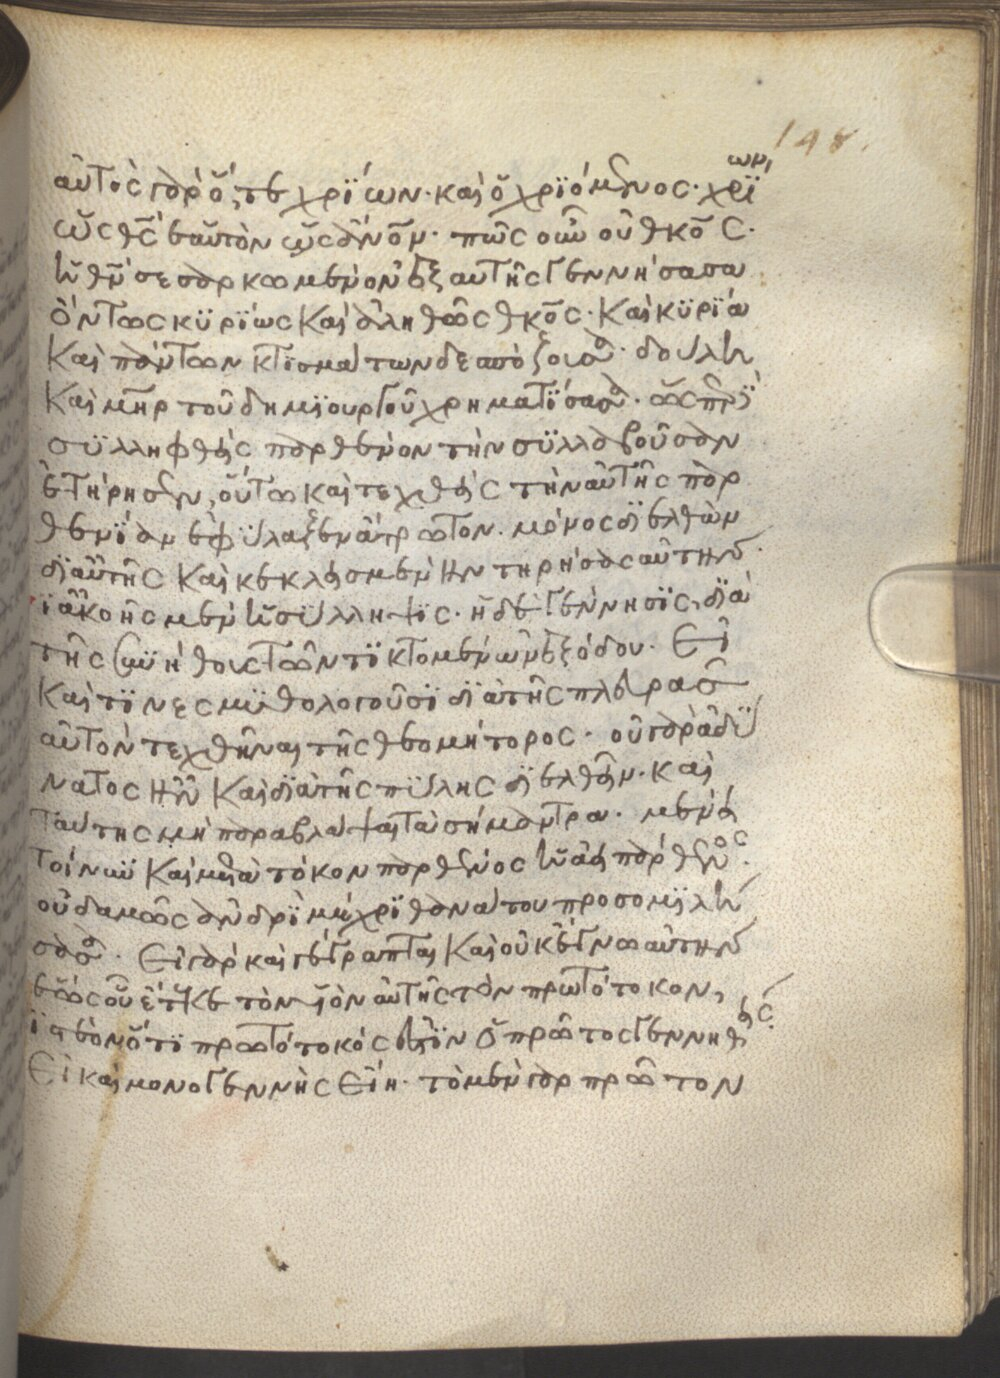 148.
αὐτὸς γὰρ ὅ,τε χρΐων· καὶ ὁ χρϊόμενος· χρΐων,
ὡς θς ἑαυτὸν ὡς ἄνον· πῶς οὖν οὐ θκος·
ἡ θν σεσαρκωμένον ἐξ αὐτῆς γεννήσασα
ὄντως κϋρΐως καὶ ἀληθῶς θκος· καὶ κϋρΐα
καὶ πάντων κτϊσμάτων δεσπόζουσα· δούλη
καὶ μηρ τοῦ δημϊουργοῦ χρηματΐσασα· ὥσπερ δὲ
σϋλληφθεὶς παρθένον τὴν σϋλλαβοῦσαν
ἐτήρησεν, οὕτω καὶ τεχθεὶς τὴν αὐτῆς παρ
θενΐαν ἐφΰλαξεν ἄτρωτον. μόνος διελθὼν
δι' αὐτῆς καὶ κεκλεισμένην τηρήσας αὐτὴν δ
ϊ ἀκοῆς μὲν ἡ σΰλληψϊς· ἡ δὲ γέννησϊς, διὰ
τῆς συνήθους τῶν τϊκτομένων ἐξόδου. Εἰ
καὶ τϊνες μϋθολογοῦσϊ διὰ τῆς πλευρᾶς
αὐτὸν τεχθῆναι τῆς θεομήτορος· οὐ γὰρ ἀδΰ
νατος ἦν καὶ διὰ τῆς πΰλης διελθεῖν· καὶ
ταύτης μὴ παραβλάψαι τὰ σήμαντρα· μένει
τοίνυν καὶ μετὰ τόκον παρθένος ἡ ἀειπάρθενος·
οὐδαμῶς ἀνδρὶ μέχρϊ θανάτου προσομϊλή
σασα· Εἰ γὰρ καὶ γέγραπται καὶ οὐκ ἔγνω αὐτὴν
ἕως οὗ ἔτεκε τὸν υἱὸν αὐτῆς τὸν πρωτότοκον,
ϊστέον ὅτι πρωτότοκός ἐστϊν ὁ πρῶτος γεννηθείς·
Εἰ καὶ μονογεννὴς Εἴη· τὸ μὲν γὰρ πρῶτον